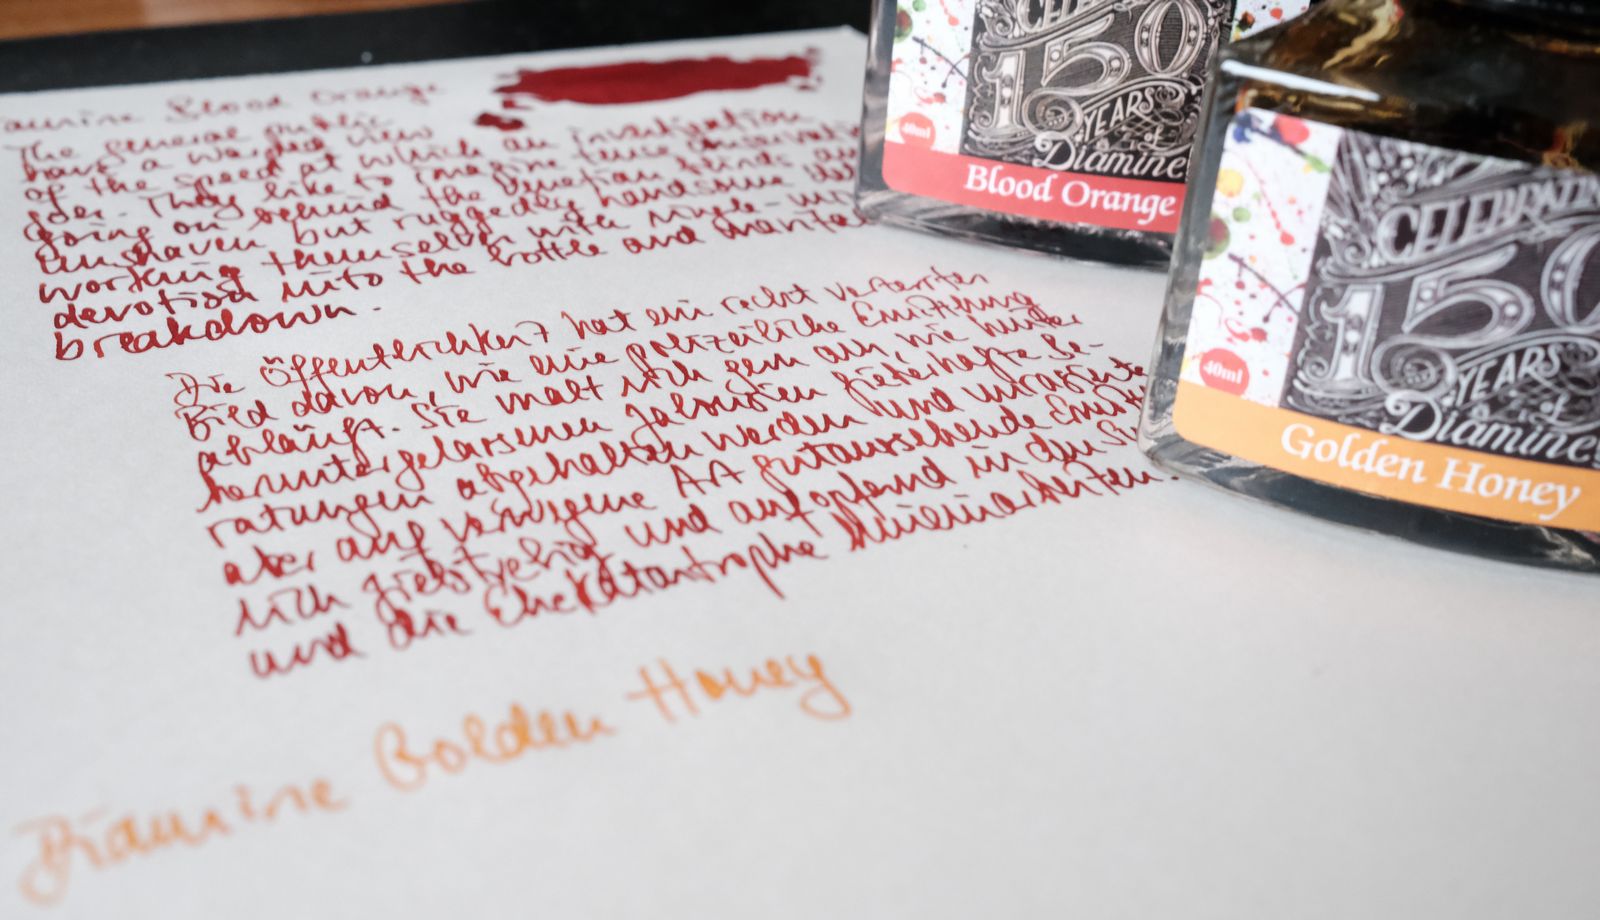 Blood Orange
The general public
have a warped view
of the speed at which an investigation
They like to imagine tense conversations
going on behind the venetian blinds and
unshaven but ruggedly handsome
working themselves with single-
devotion into the bottle and marital
breakdown.
Die Öffentlichkeit hat ein recht verzerrtes
Bild davon, wie eine polizeiliche Ermittlung
abläuft. Sie malt sich gern aus, wie hinter
heruntergelassenen Jalousien fieberhafte Be-
ratungen abgehalten werden und unrasierte
aber auf verwegene Art gutaussehende
sich zielstrebig und aufopfernd in den
und die Ehekatastrophe hineinarbeiten.
Diamine Golden Honey
CELEBRATING
150
YEARS of
Diamine
40ml
Blood Orange
CELEBRATING
150
YEARS of
Diamine
40ml
Golden Honey